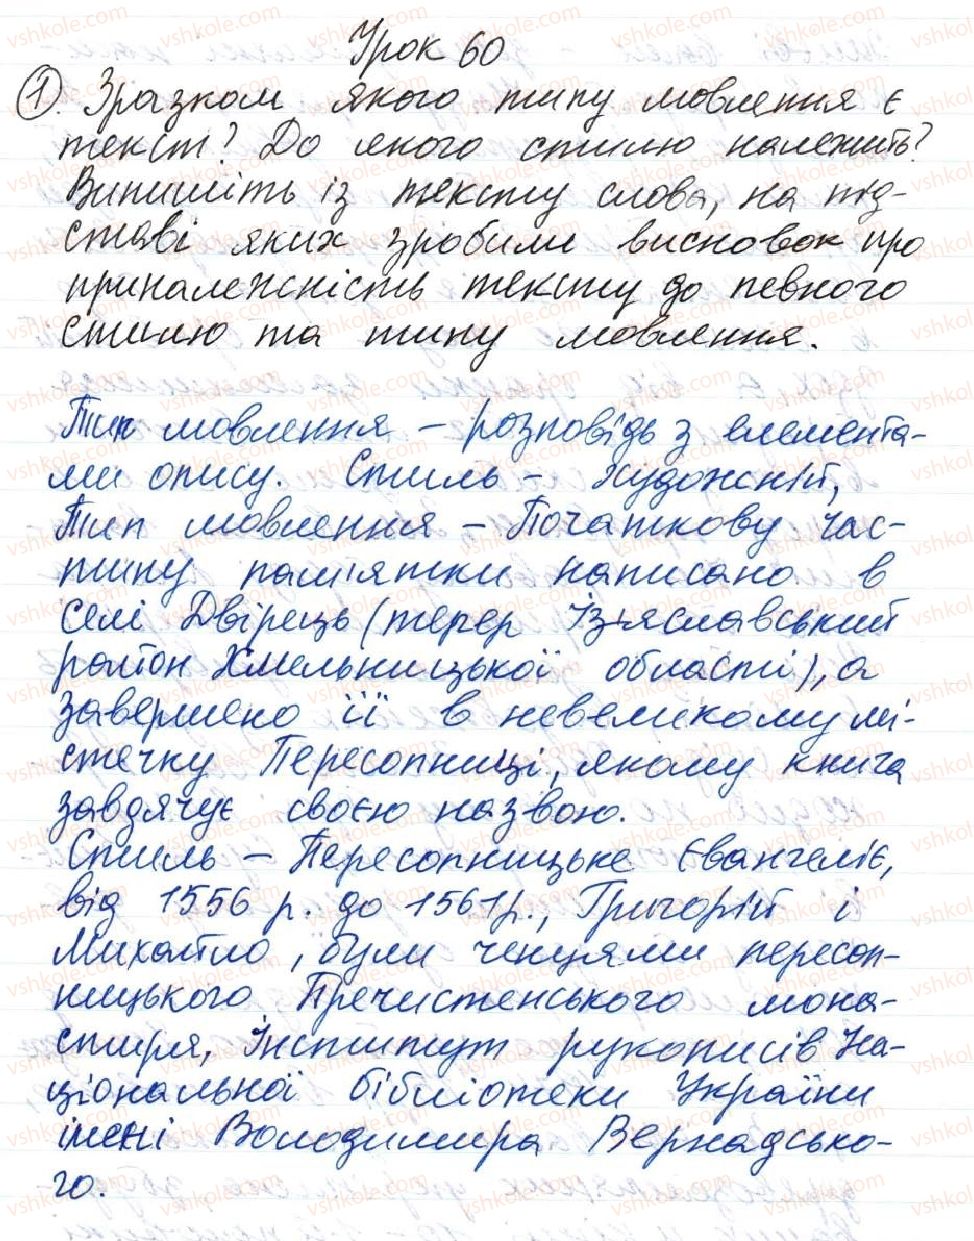 Урок 60
1. Зразком якого типу мовлення є
текст? До якого стилю належить?
Випишіть із тексту слова, на під-
ставі яких зробили висновок про
приналежність тексту до певного
стилю та типу мовлення.
Тип мовлення – розповідь з елемента-
ми опису. Стиль – художній,
Тип мовлення – Початкову час-
тину пам'ятки написано в
селі Двірець (тепер Ізяславський
район Хмельницької області), а
завершено її в невеликому мі-
стечку Пересопниці, якому книга
завдячує своєю назвою.
Стиль – Пересопницьке Євангеліє,
від 1556 р. до 1561 р., Григорій і
Михайло, були ченцями пересоп-
ницького Пречистенського мона-
стиря, Інститут рукописів На-
ціональної бібліотеки України
імені Володимира Вернадсько-
го.